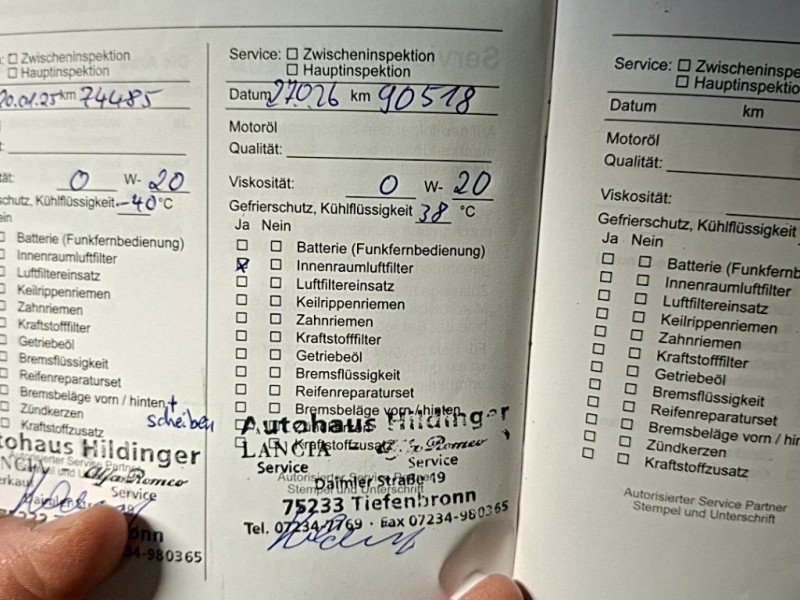 Service: ☐ Zwischeninspektion
☐ Hauptinspektion
20.01.25 km 74485
0 W- 20
schutz, Kühlflüssigkeit -40 °C
Batterie (Funkfernbedienung)
Innenraumluftfilter
Luftfiltereinsatz
Keilrippenriemen
Zahnriemen
Kraftstofffilter
Getriebeöl
Bremsflüssigkeit
Reifenreparaturset
Bremsbeläge vorn / hinten +
scheiben
Zündkerzen
Kraftstoffzusatz
Hildinger
Autorisierter Service Partner
Alfa Romeo
Service
34-980365
Service: ☐ Zwischeninspektion
☐ Hauptinspektion
Datum 27.01.26 km 90518
Motoröl
Qualität:
Viskosität: 0 W- 20
Gefrierschutz, Kühlflüssigkeit 38 °C
Ja Nein
☐ ☐ Batterie (Funkfernbedienung)
☒ ☐ Innenraumluftfilter
☐ ☐ Luftfiltereinsatz
☐ ☐ Keilrippenriemen
☐ ☐ Zahnriemen
☐ ☐ Kraftstofffilter
☐ ☐ Getriebeöl
☐ ☐ Bremsflüssigkeit
☐ ☐ Reifenreparaturset
☐ ☐ Bremsbeläge vorn / hinten
Kraftstoffzusatz
Autohaus Hildinger
LANCIA Alfa Romeo
Service Service
Autorisierter Service Partner
Daimler Straße 19
Stempel und Unterschrift
75233 Tiefenbronn
Tel. 07234-7769 · Fax 07234-980365
Service: ☐ Zwischeninspe
☐ Hauptinspektion
Datum km
Motoröl
Qualität:
Viskosität:
Gefrierschutz, Kühlflüssigkeit
Ja Nein
☐ ☐ Batterie (Funkfernb
☐ ☐ Innenraumluftfilter
☐ ☐ Luftfiltereinsatz
☐ ☐ Keilrippenriemen
☐ ☐ Zahnriemen
☐ ☐ Kraftstofffilter
☐ ☐ Getriebeöl
☐ ☐ Bremsflüssigkeit
☐ ☐ Reifenreparaturset
☐ ☐ Bremsbeläge vorn / hin
☐ ☐ Zündkerzen
☐ ☐ Kraftstoffzusatz
Autorisierter Service Partner
Stempel und Unterschrift